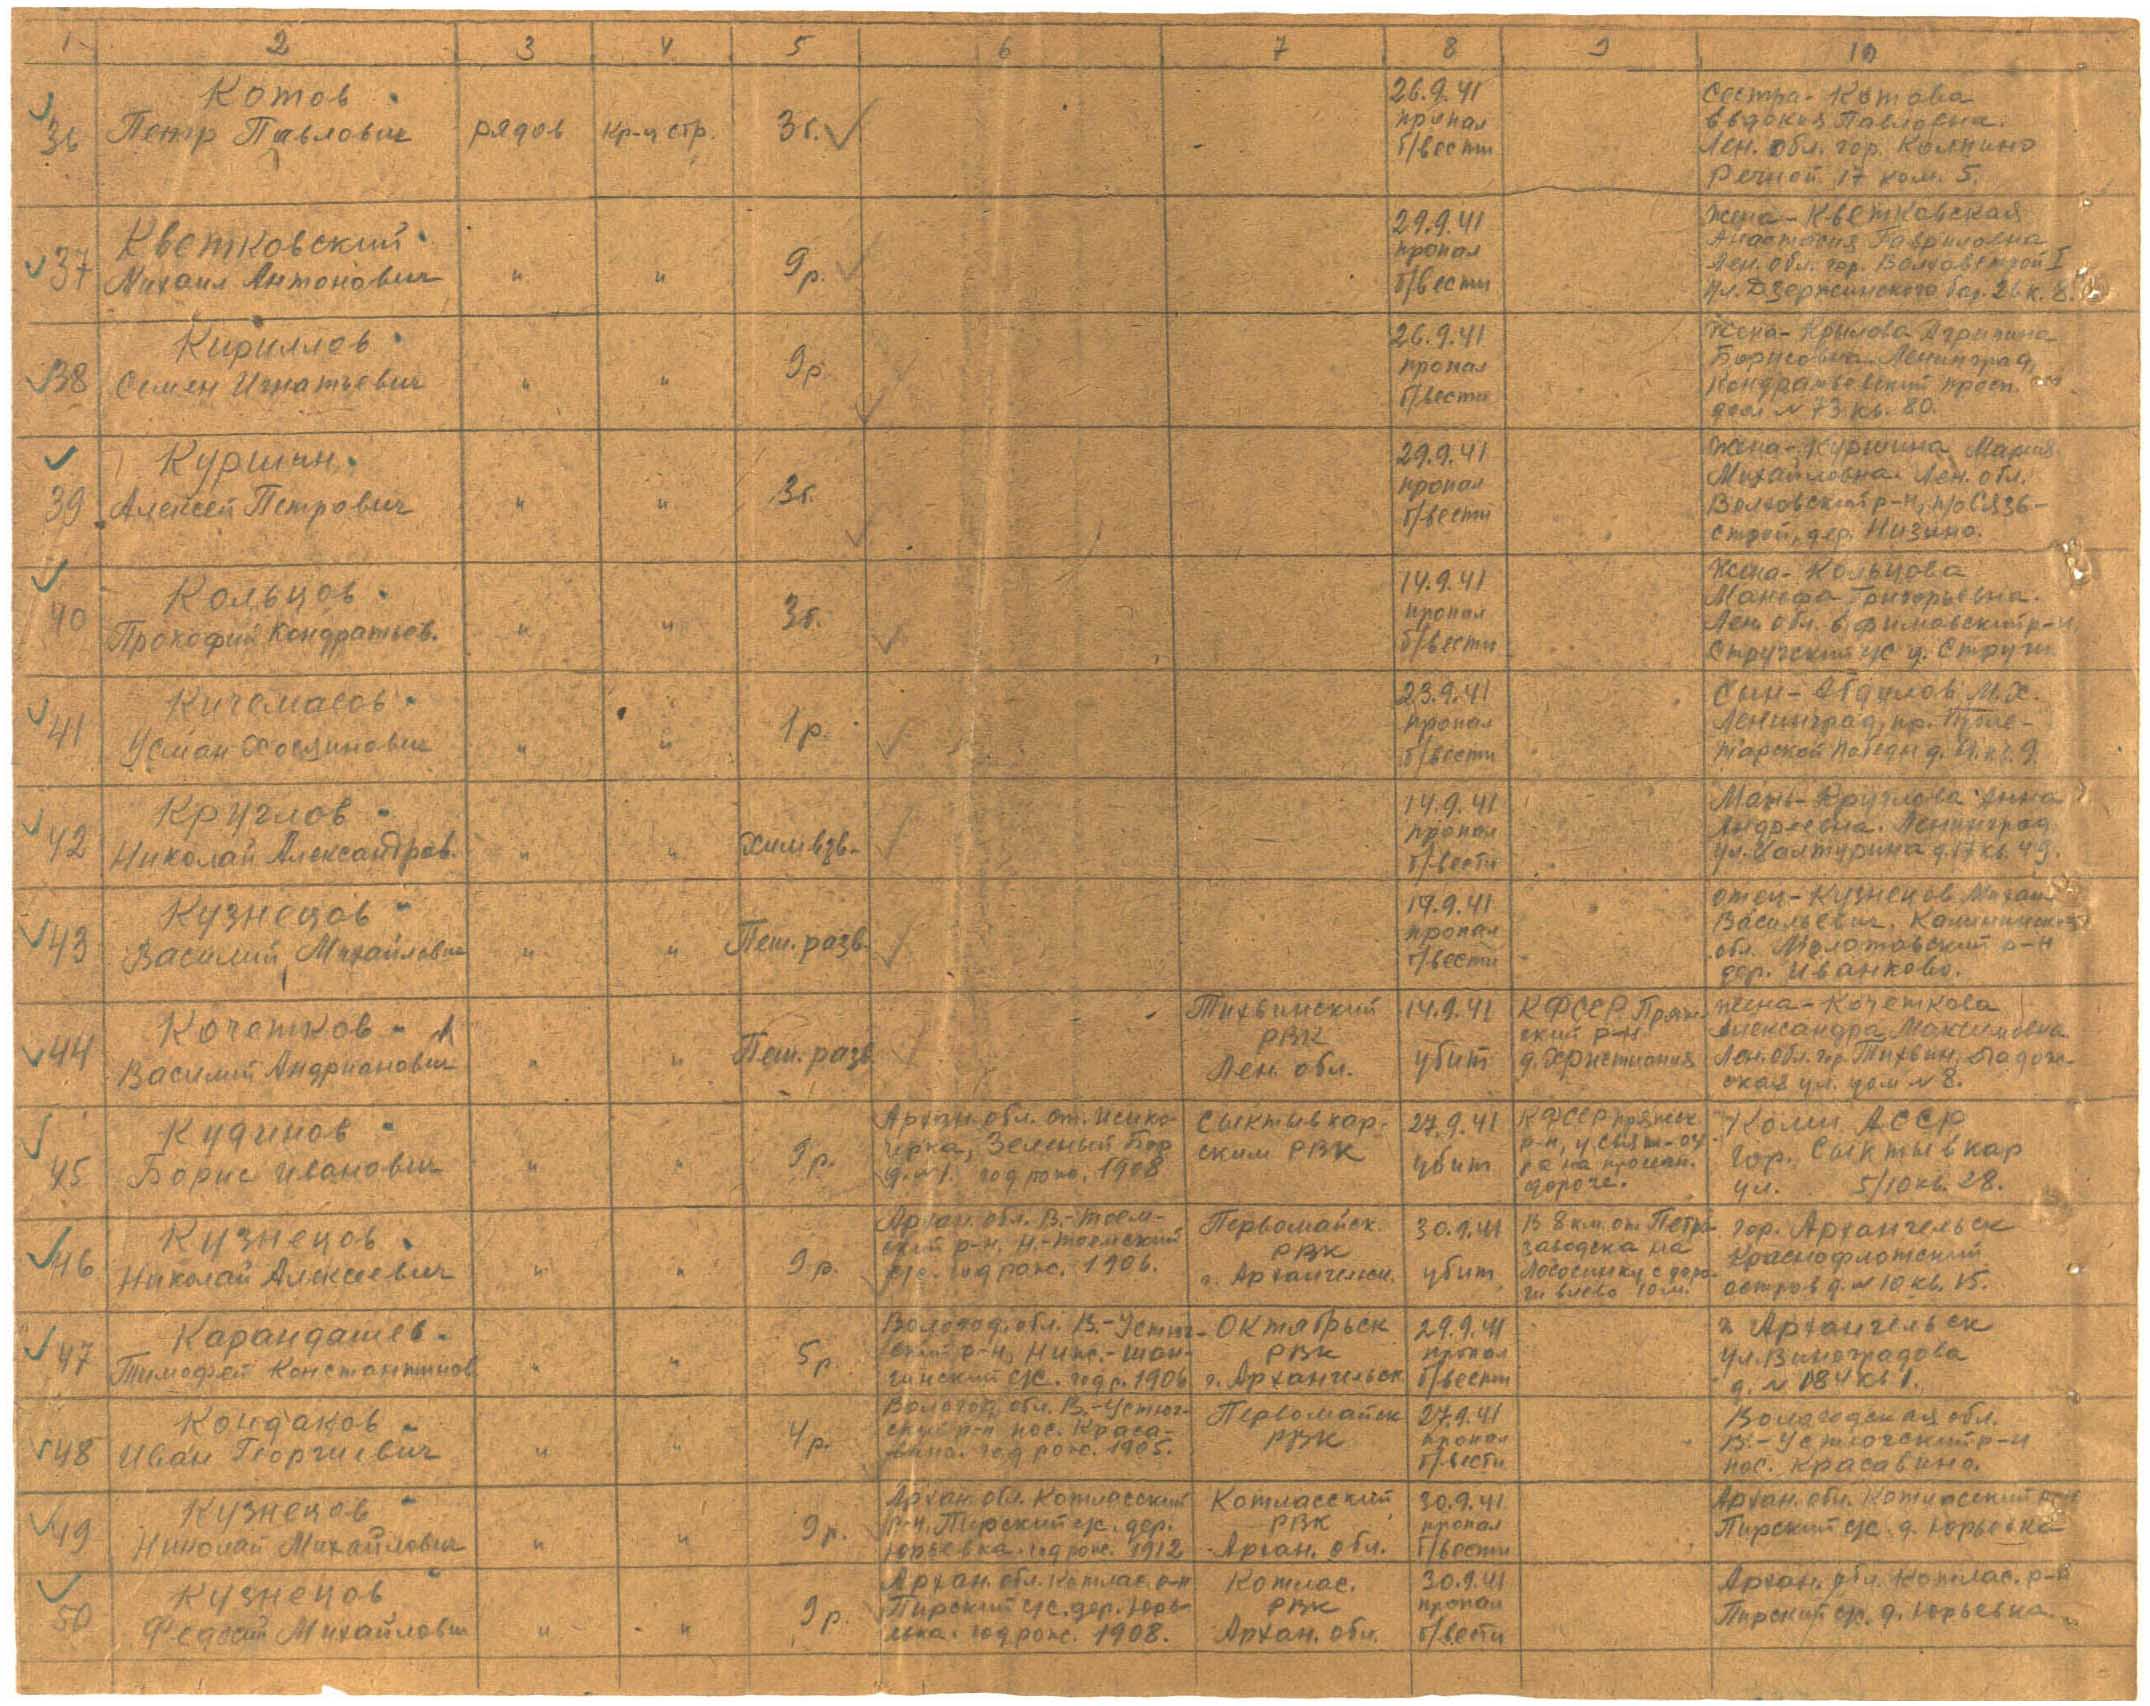 1 2 3 4 5 6 7 8 9 10
36
Котов
Петр Павлович
рядов
кр-ц стр.
3б.
26.9.41
пропал
б/вести
Сестра - Котова
Евдокия Павловна.
Лен. обл. гор. Колпино
Речной 17 ком. 5.
37
Кветковский
Михаил Антонович
" "
9р.
29.9.41
пропал
б/вести
Жена - Кветковская
Анастасия Гавриловна
Лен. обл. гор. Волховстрой I
ул. Дзержинского бар. 26 к. 8.
38
Кириллов
Семен Игнатьевич
" "
9р
26.9.41
пропал
б/вести
Жена - Крылова Агрипина
Борисовна Ленинград,
Кондратьевский просп.
дом № 73 кв. 80.
39
Куршин
Алексей Петрович
" "
3б.
29.9.41
пропал
б/вести
Жена - Куршина Мария
Михайловна. Лен. обл.
Волховский р-н, п/о Сязь-
строй, дер. Низино.
40
Кольцов
Прокофий Кондратьев.
" "
3б.
14.9.41
пропал
б/вести
Жена - Кольцова
Манефа Григорьевна.
Лен. обл. Ефимовский р-н
с/с д. Струги
41
Кичемасов
Усман Хосяинович
" "
1р.
23.9.41
пропал
б/вести
Сын - М.Х.
Ленинград, пр. Проле-
тарской Победы д. 61. кв. 9.
42
Круглов
Николай Александров.
" "
хим взв.
14.9.41
пропал
б/вести
Мать - Круглова Анна
Андреевна. Ленинград
ул. Халтурина д. 17 кв. 49.
43
Кузнецов
Василий Михайлович
" "
Пеш. разв.
19.9.41
пропал
б/вести
отец - Кузнецов Михаил
Васильевич. Калининская
обл. Молотовский р-н
дер. Иванково.
44
Кочетков
Василий Андрианович
" "
Пеш. разв
Тихвинский
РВК
Лен. обл.
14.9.41
убит
КФССР Пряж-
ский р-н
д. Христиания
Жена - Кочеткова
Александра Максимовна
Лен. обл. гор. Тихвин, Ладож-
ская ул. дом № 8.
45
Кудинов
Борис Иванович
" "
9р.
Архан. обл. ст. Исако-
горка, Зеленый Бор
д. №1. год рож. 1908
Сыктывкар-
ским РВК
27.9.41
убит
КФССР Пряжск.
р-н, у Свят-оз
ра на
дороге.
Коми АССР
гор. Сыктывкар
ул. 5/10 кв. 28.
46
Кузнецов
Николай Алексеевич
" "
9р.
Архан. обл. В.-Тоем-
ский р-н, Н.-Тоемский
с/с. год рож. 1906.
Первомайск.
РВК
г. Архангельск.
30.9.41
убит
В 8 км. от Петро-
заводска на
Лососинку с доро-
ги влево 10 м.
гор. Архангельск
Краснофлотский
остров д. № 10 кв. 15.
47
Карандашев
Тимофей Константинов
" "
5р.
Вологод. обл. В.-Устюг-
ский р-н, Ниж.-Шар-
гинский с/с. год р. 1906
Октябрьск
РВК
г. Архангельск
29.9.41
пропал
б/вести
г. Архангельск
ул. Виноградова
д. № 184 кв 1.
48
Кондаков
Иван Георгиевич
" "
4р.
Вологод. обл. В.-Устюг-
ский р-н пос. Краса-
вино. год рож. 1905.
Первомайск
РВК
27.9.41
пропал
б/вести
Вологодская обл.
В.-Устюгский р-н
пос. Красавино.
49
Кузнецов
Николай Михайлович
" "
9р.
Архан. обл. Котласский
р-н. Пирский с/с. дер.
Юрьевка. год рож. 1912
Котласский
РВК
Архан. обл.
30.9.41
пропал
б/вести
Архан. обл. Котласский р-н
Пирский с/с. д. Юрьевка
50
Кузнецов
Федосий Михайлович
" "
9р.
Архан. обл. Котлас. р-н
Пирский с/с. дер. Юрь-
евка. год рож. 1908.
Котлас.
РВК
Архан. обл.
30.9.41
пропал
б/вести
Архан. обл. Котлас. р-н
Пирский с/с. д. Юрьевка.